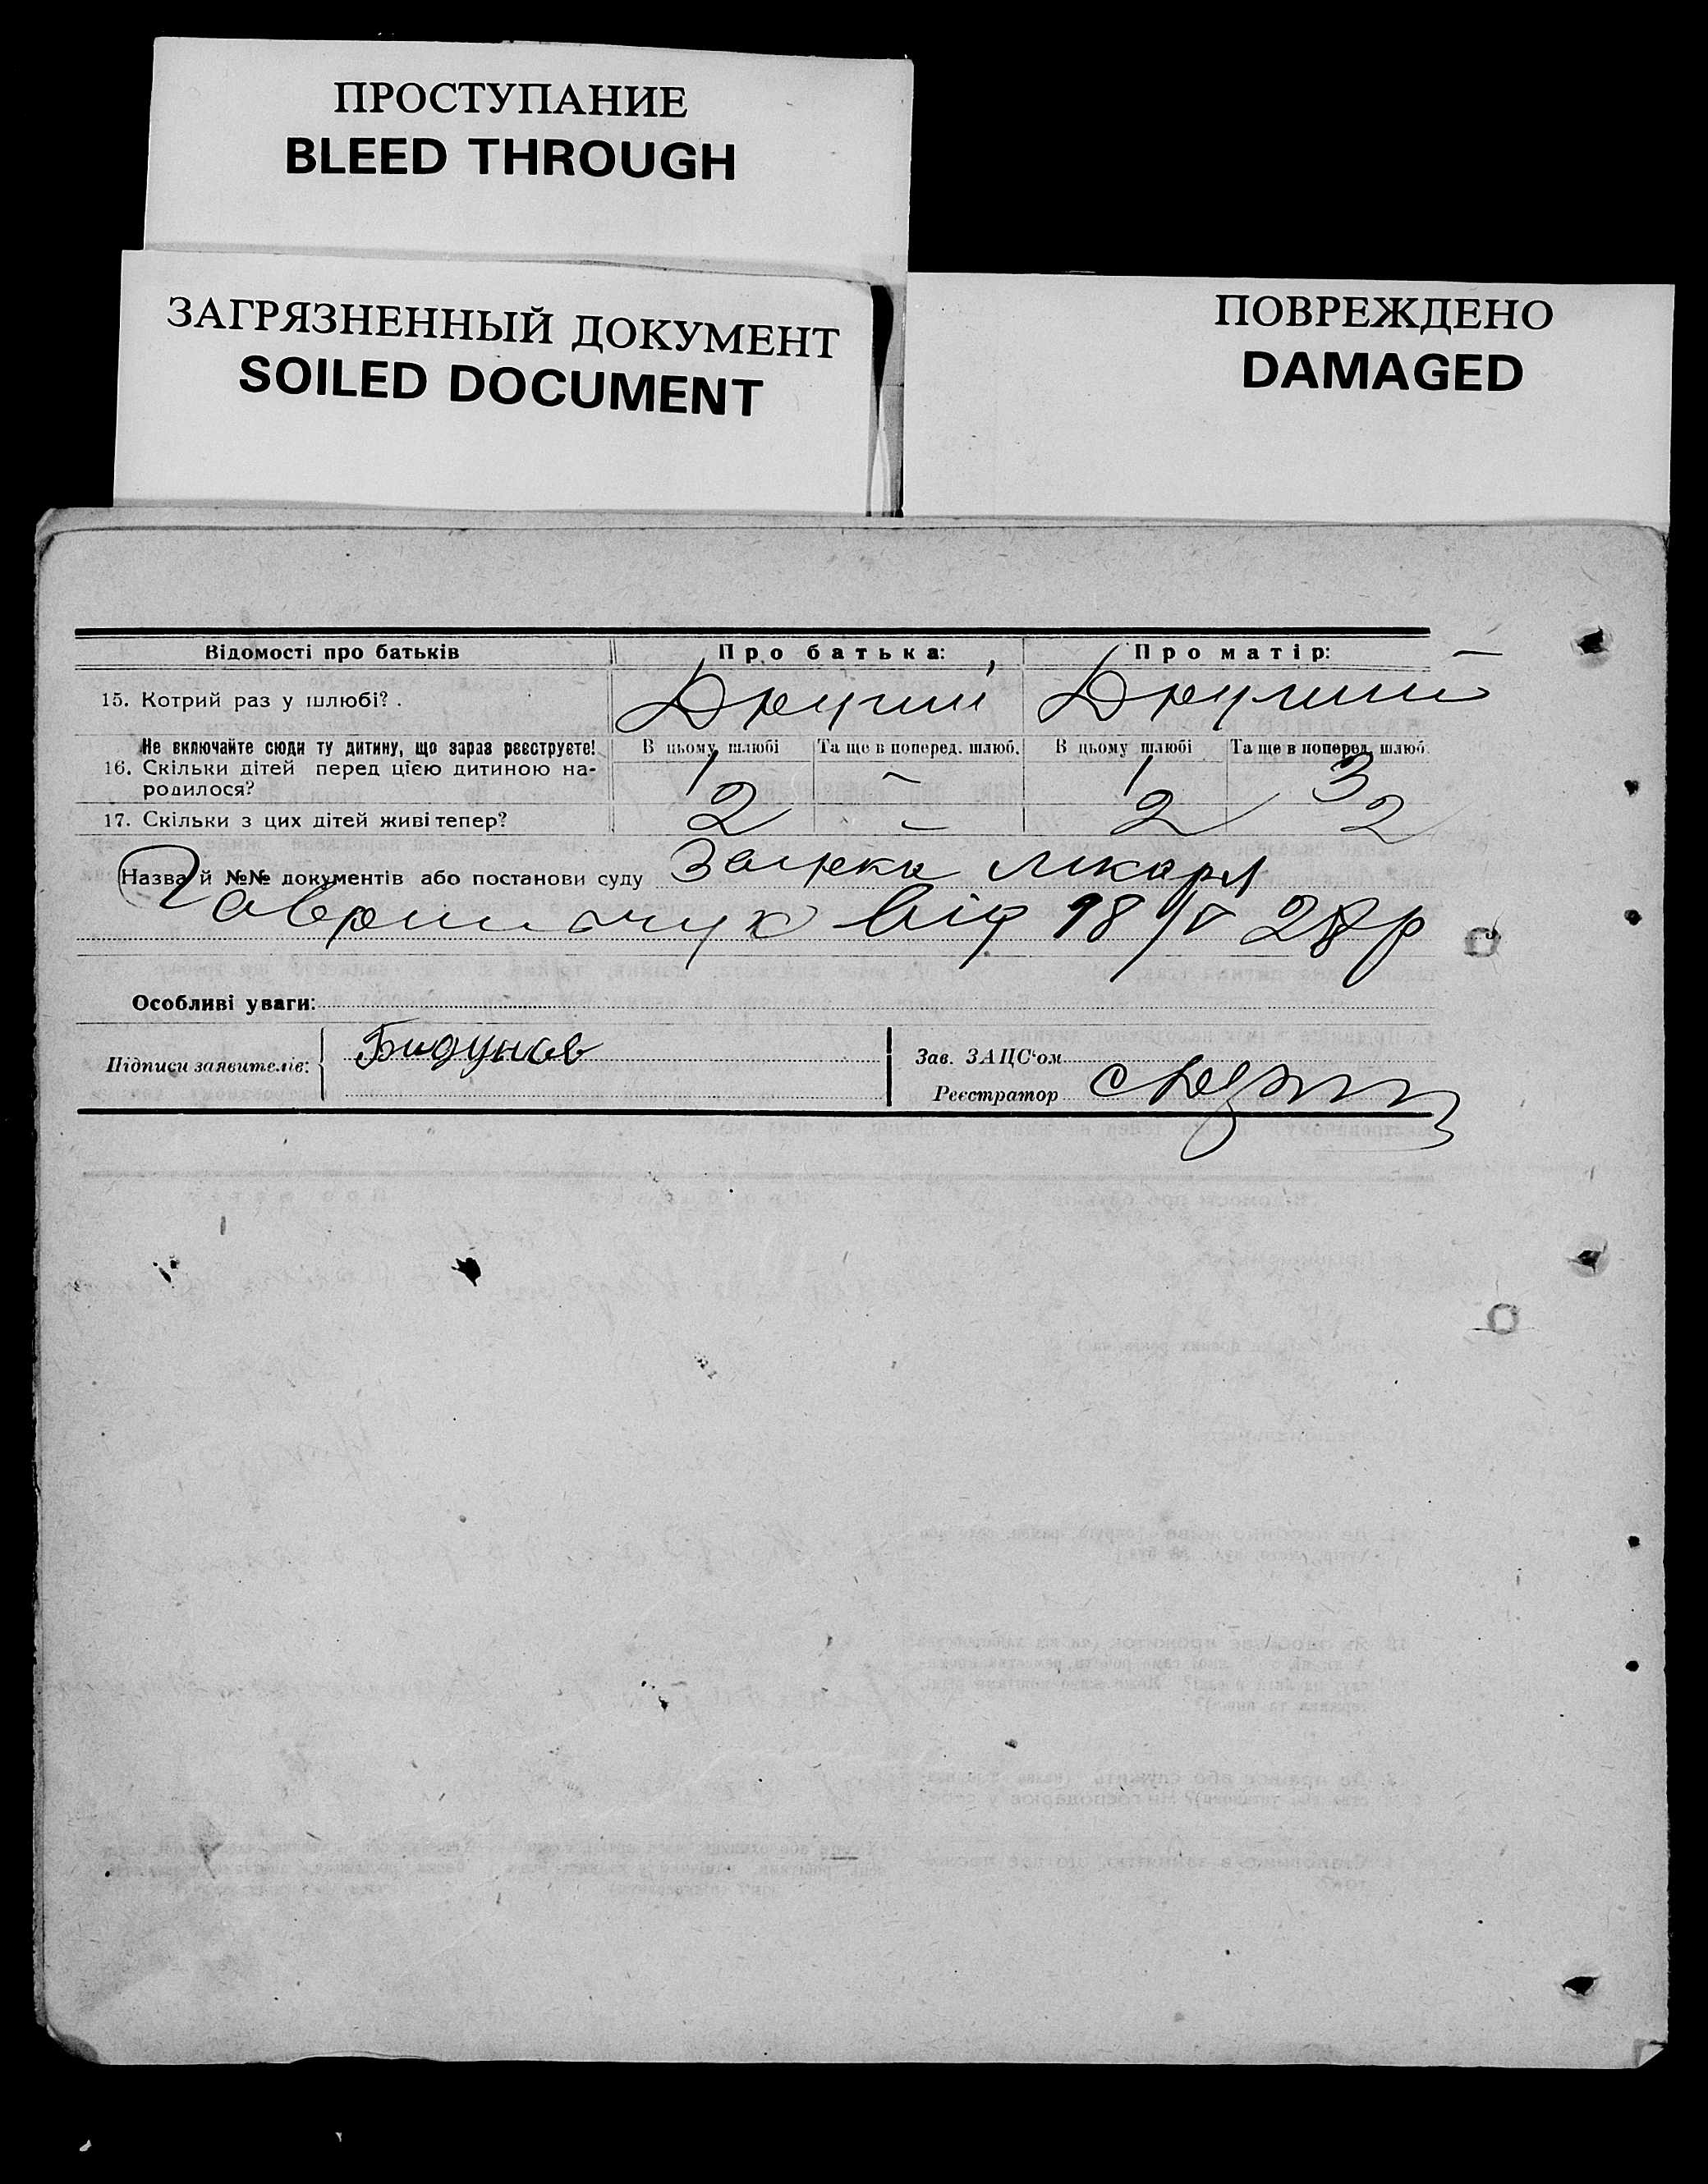 ПРОСТУПАНИЕ
BLEED THROUGH
ЗАГРЯЗНЕННЫЙ ДОКУМЕНТ
SOILED DOCUMENT
ПОВРЕЖДЕНО
DAMAGED
Відомості про батьків Про батька: Про матір:
15. Котрий раз у шлюбі?. Другий Другий
Не включайте сюди ту дитину, що зараз реєструєте! В цьому шлюбі Та ще в поперед. шлюб. В цьому шлюбі Та ще в поперед. шлюб.
16. Скільки дітей перед цією дитиною на-
родилося? 1 – 1 3
17. Скільки з цих дітей живі тепер? 2 – 2 2
Назва й №№ документів або постанови суду лікаря
від 18/V 28р
Особливі уваги:
Підписи заявителів: Бидунов Зав. ЗАЦС'ом
Реєстратор